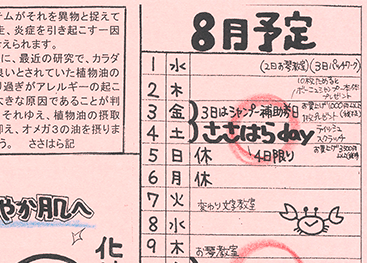 テムがそれを異物と捉えて
走、炎症を引き起こす一因
えられます。
に、最近の研究で、カラダ
良いとされていた植物油の
り過ぎがアレルギーの起こ
大きな原因であることが判
それゆえ、植物油の摂取
卬え、オメガ3の油を摂りま
う。 ささはら記
やか肌へ
化
8月予定
1 水 (2日お琴教室)(3日パッチワーク)
2 木
3 金 3日はシャンプー補助券日
4 土 ささはらday
ティッシュ
スクラッチ
5 日 休 4日限り
6 月 休
7 火 変わり文字教室
8 水
9 木 お琴教室